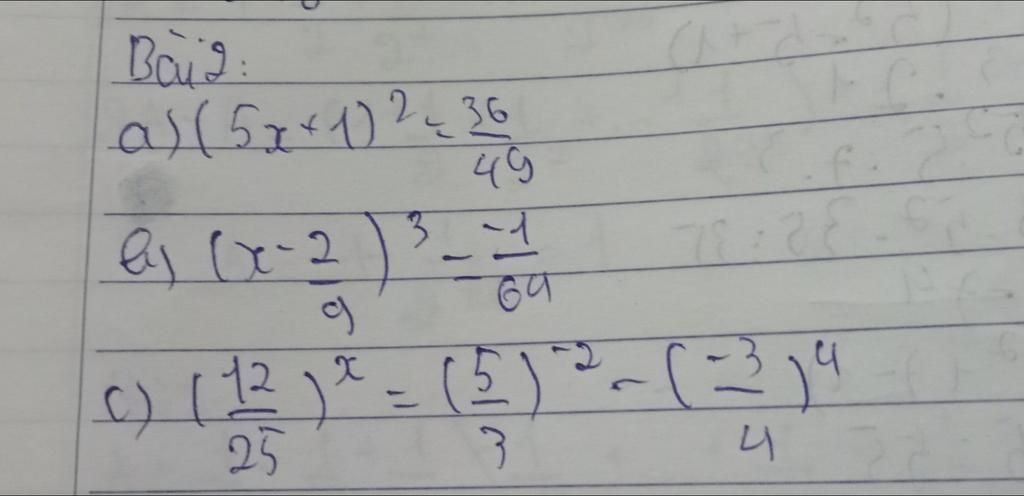 Bài 2:
a) (5x+1)² = 36/49
b) (x - 2/9)³ = -1/64
c) (12/25)ˣ = (5/3)⁻² - (-3/4)⁴